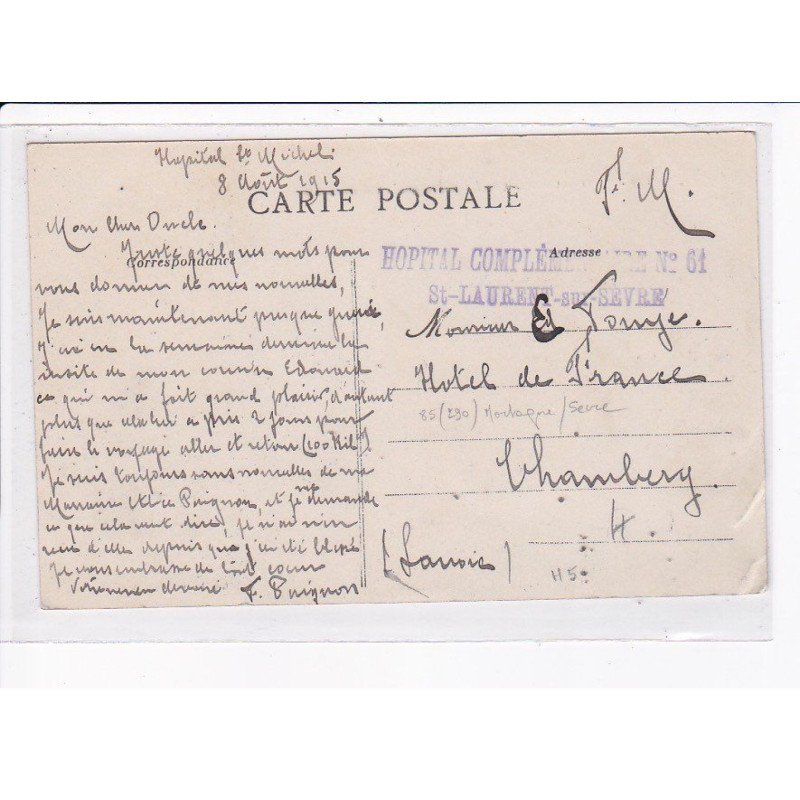 Hopital St Michel
8 Août 1915
CARTE POSTALE
F. M.
Mon Cher Oncle.
Correspondance
Adresse
Juste quelques mots pour
vous donner de mes nouvelles,
Je suis maintenant presque guérie,
J'ai eu la semaines dernière la
visite de mon cousin Edouard
ce qui m'a fait grand plaisir, d'autant
plus que cela lui a pris 2 jours pour
faire le voyage aller et retour (100 Kil)
Je suis toujours sans nouvelles de ma
Marraine Puignon, et je me demande
ce que cela veut dire, je n'ai rien
reçu d'elle depuis que j'ai été blessé
Je vous embrasse de tout cœur
Votre neveu dévoué F. Puignon
HOPITAL COMPLÉMENTAIRE No 61
St-LAURENT-sur-SEVRE
Monsieur Ed
Hotel de France
85 (290) Mortagne/Sevre
Chambery.
(Savoie)
H.
115